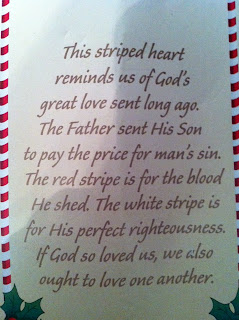 This striped heart
reminds us of God's
great love sent long ago.
The Father sent His Son
to pay the price for man's sin.
The red stripe is for the blood
He shed. The white stripe is
for His perfect righteousness.
If God so loved us, we also
ought to love one another.